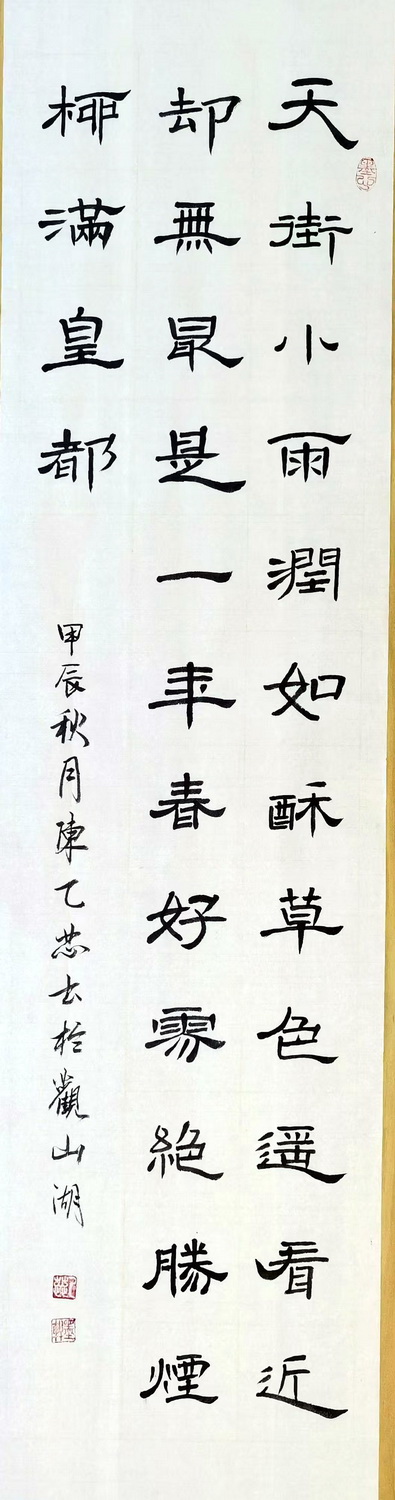 天街小雨潤如酥草色遙看近
却無最是一年春好處絕勝煙
柳滿皇都
甲辰秋月陳乙书於觀山湖